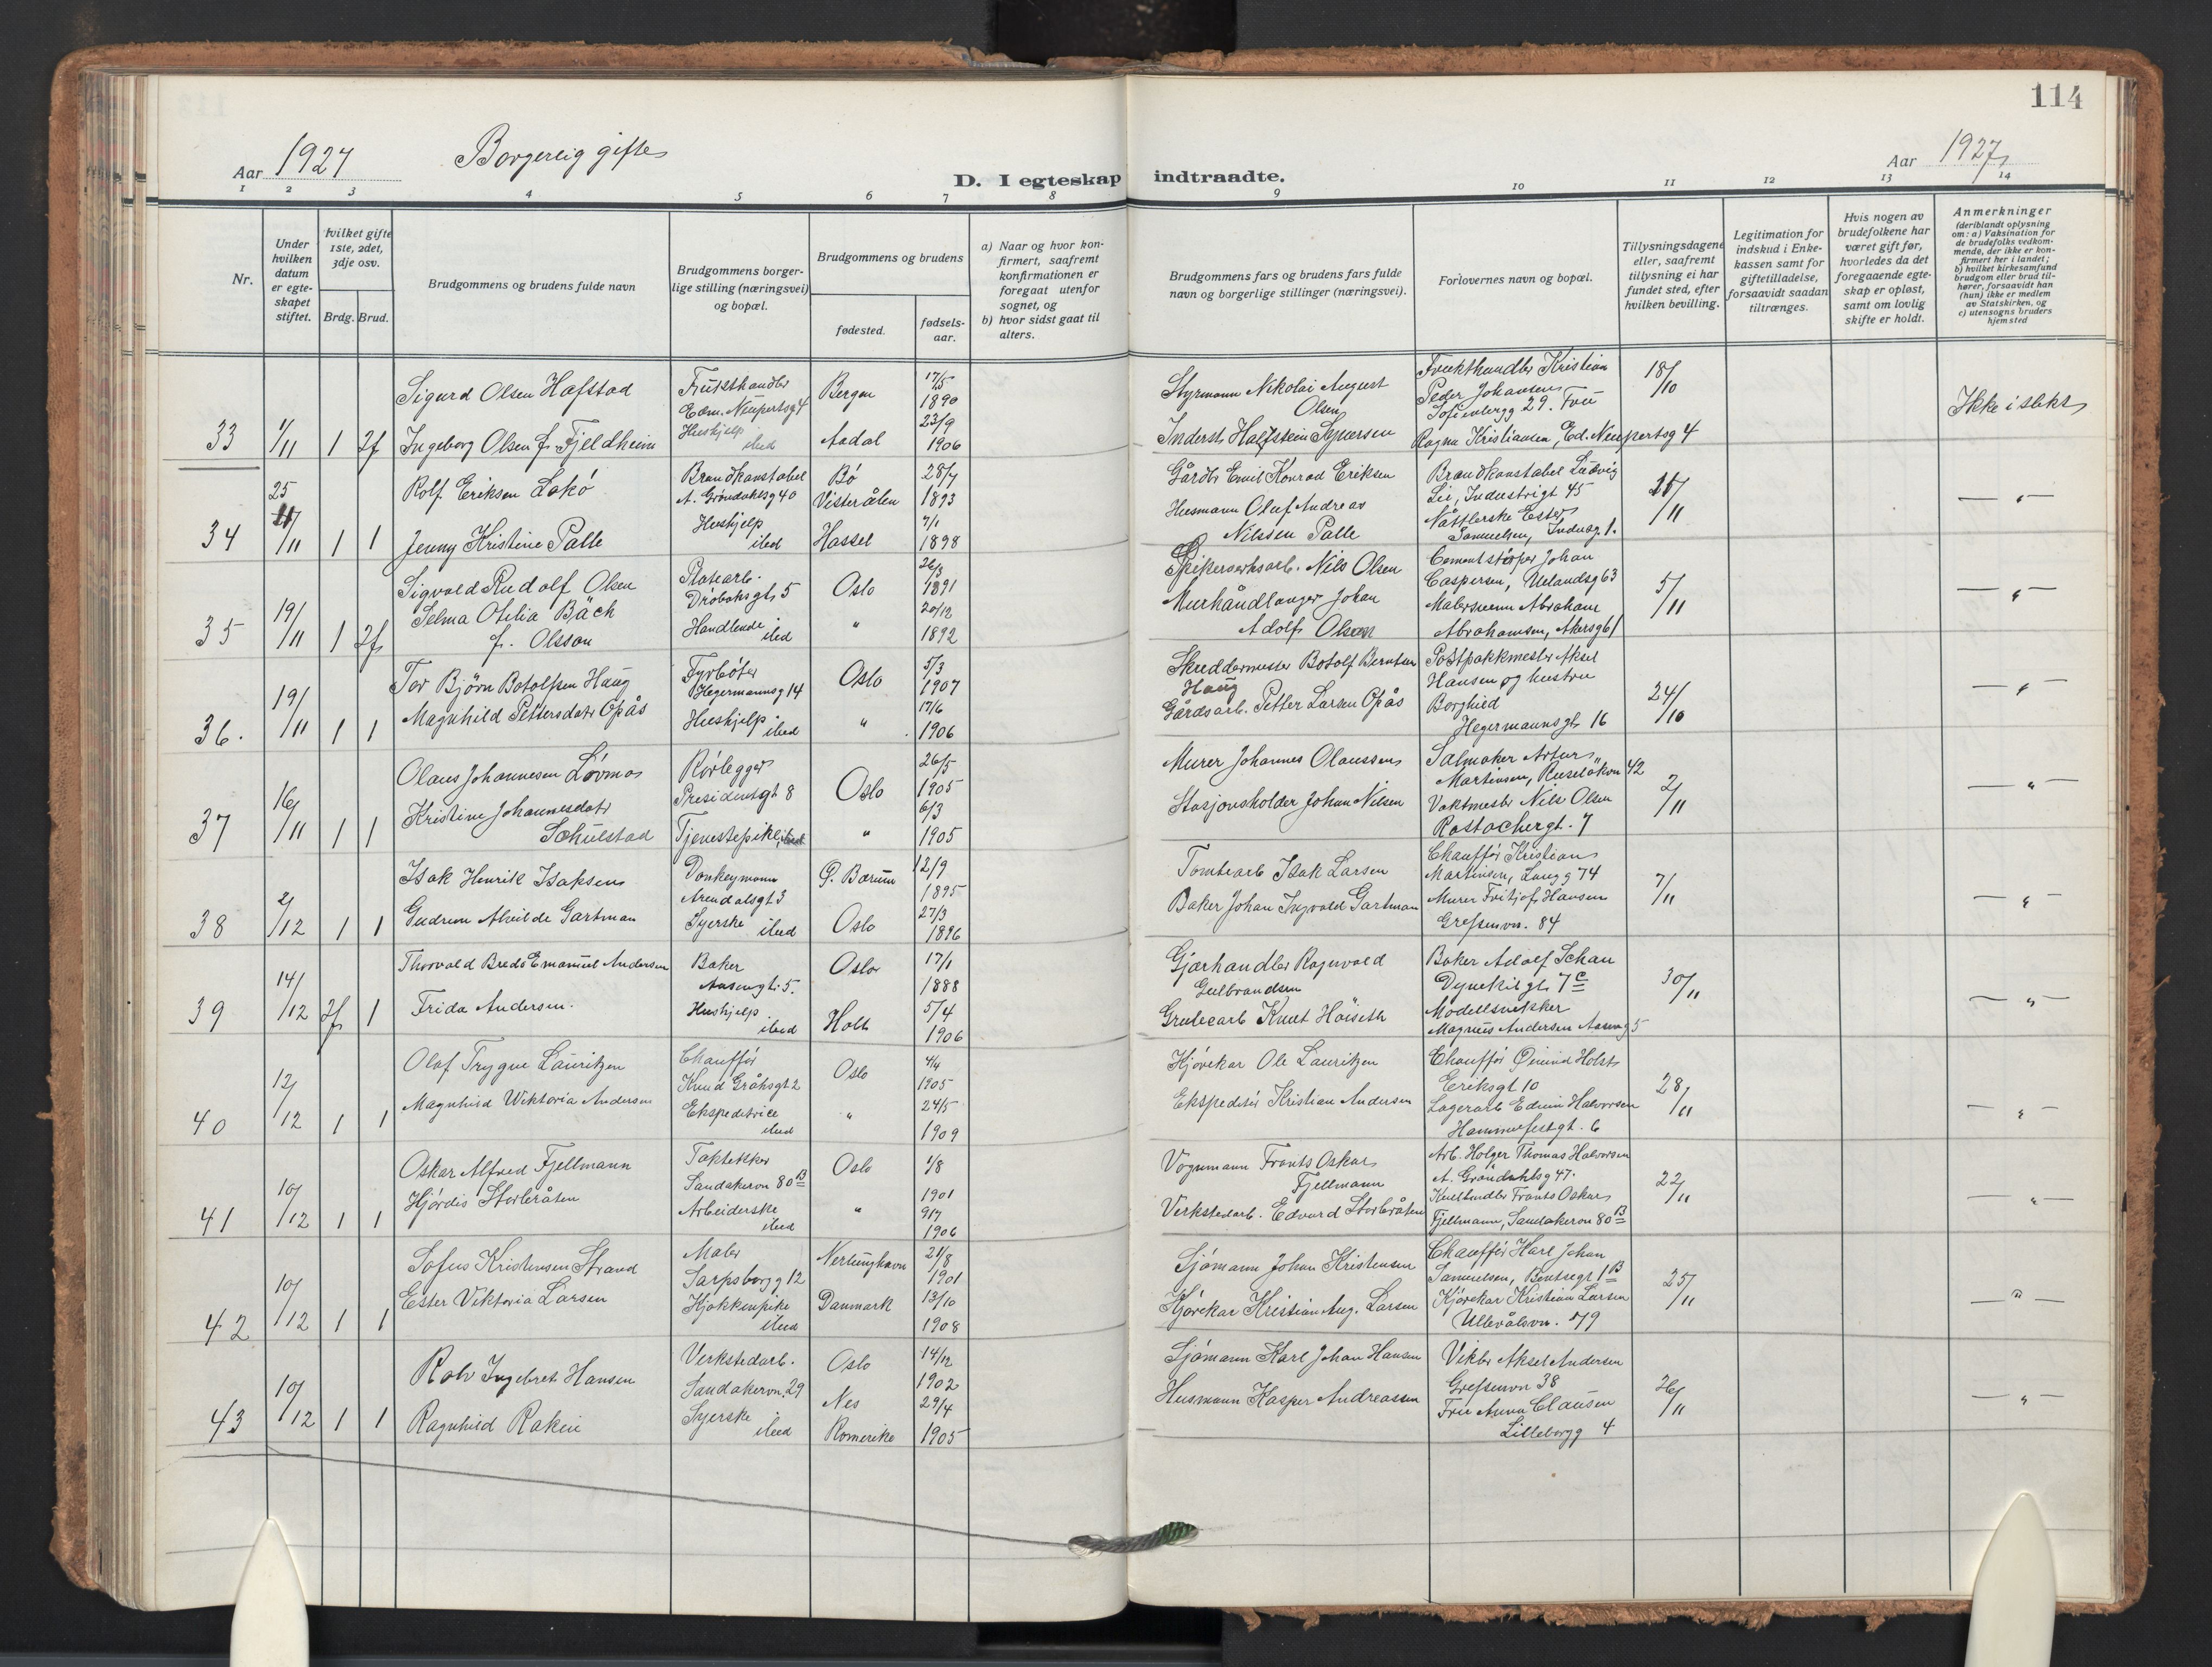 114
Aar 1927 Borgerlig gifte
D. I egteskap indtraadte.
Aar 1927
1 2 3 4 5 6 7 8 9 10 11 12 13 14
Nr.
Under hvilken datum er egte-skapet stiftet.
hvilket gifte 1ste, 2det, 3dje osv.
Brdg. Brud.
Brudgommens og brudens fulde navn
Brudgommens borger-
lige stilling (næringsvei)
og bopæl.
Brudgommens og brudens
fødested.
fødsels-
aar.
a) Naar og hvor kon-
firmert, saafremt
konfirmationen er
foregaat utenfor
sognet, og
b) hvor sidst gaat til
alters.
Brudgommens fars og brudens fars fulde
navn og borgerlige stillinger (næringsvei).
Forlovernes navn og bopæl.
Tillysningsdagene
eller, saafremt
tillysning ei har
fundet sted, efter
hvilken bevilling.
Legitimation for
indskud i Enke-
kassen samt for
giftetilladelse,
forsaavidt saadan
tiltrænges.
Hvis nogen av
brudefolkene har
været gift før,
hvorledes da det
foregaaende egte-
skap er opløst,
samt om lovlig
skifte er holdt.
Anmerkninger
(deriblandt oplysning
om: a) Vaksination for
de brudefolks vedkom-
mende, der ikke er kon-
firmert her i landet;
b) hvilket kirkesamfund
brudgom eller brud til-
hører, forsaavidt han
(hun) ikke er medlem
av Statskirken, og
c) utensogns bruders
hjemsted
33 1/11 1 2f
Sigurd Olsen Hafstad
Ingeborg Olsen f. Fjeldheim
Frukthandler
Edm. Neupertsg 4
Hushjelp
ibid
Bergen
Aadal
17/5
1890
23/9
1906
Styrmann Nikolai August
Olsen
Inderst Halfstein Syversen
Frukthandler Kristian
Peder Johansen
Sofienbergg 29. Fru
Ragna Kristiansen, Ed. Neupertsg 4
18/10
Ikke i slekt
34 25/11 1 1
Rolf Eriksen Lakó
Jenny Kristine Palle
Brandkonstabel
A. Gröndahlsg 40
Hushjelp
ibid
Bö
Vesterålen
Hassel
28/7
1893
7/1
1898
Gårdbr Emil Konrad Eriksen
Husmann Oluf Andreas
Nilssen Palle
Brandkonstabel Ludvig
Lie, Industrigt 45
Samuelsen, Industg. 1.
/11
— " —
35 19/11 1 2f
Sigvald Rudolf Olsen
Selma Otilia Bäch
f. Olsson
Platearb.
Dröbaksgt 5
Handlende
ibid
Oslo
"
26/3
1891
20/12
1892
Spikerverksarb. Nils Olsen
Murhåndlanger Johan
Adolf Olsson
Cementstöper Johan
Caspersen, Uelandsg 63
Malersvenn Abraham
Abrahamsen, Akersg 61
5/11
— " —
36. 19/11 1 1
Tor Björn Botolfsen Haug
Magnhild Pettersdatr Opås
Fyrböter
Hegermannsg 14
Hushjelp
ibid
Oslo
"
5/3
1907
17/6
1906
Skreddermester Botolf Berntsen
Haug
Gårdsarb. Petter Larsen Opås
Postpakkmester Aksel
Hansen og hustru
Borghild
Hegermannsgt 16
24/10
— " —
37 16/11 1 1
Olaus Johannesen Lövmo
Kristine Johannesdatr
Schulstad
Rörlegger
Presidentgt 8
Tjenestepike, ibid
Oslo
"
26/5
1905
6/3
1905
Murer Johannes Olaussen
Stasjonsholder Johan Nilsen
Salmaker Artur
Martinsen, Ruselökvn 42
Vaktmester Nils Olsen
Rostochergt. 7
2/11
" —
38 2/12 1 1
Isak Henrik Isaksen
Gudrun Alvilde Gartman
Donkeymann
Arendalsgt 3
Syerske ibid
Ö. Bærum
Oslo
12/9
1895
27/3
1896
Tomtearb Isak Larsen
Baker Johan Ingvald Gartman
Chaufför Kristian
Martinsen, Langg 74
Murer Fritjof Hansen
Grefsenvn. 84
7/11
— " —
39 14/12 2f 1
Thorvald Bredo Emanuel Andersen
Frida Andersen.
Baker
Aasengt. 5.
Hushjelp
ibid
Oslo
Holt
17/1
1888
5/4
1906
Gjærhandler Ragnvald
Gulbrandsen
Grubearb Knut Höiseth
Baker Adolf Schau
Dynekilgt 7c
Modellsnekker
Magnus Andersen Aaseng 5
30/11
— " —
40 12/12 1 1
Olaf Trygve Lauritzen
Magnhild Wiktoria Andersen
Chaufför
Knud Gråhsgt 2
Ekspeditrice
ibid
Oslo
"
4/4
1905
24/5
1909
Kjörekar Ole Lauritzen
Ekspeditör Kristian Andersen
Chaufför Öivind Holst
Eriksgt 10
Lagerarb Edvin Halvorsen
Hammerfestgt. 6
28/11
— " —
41 10/12 1 1
Oskar Alfred Fjellmann
Hjördis Storbråten
Taktekker
Sandakervn 80 B
Arbeiderske
ibid
Oslo
"
1/8
1901
9/7
1906
Vognmann Frants Oskar
Fjellmann
Verkstedarb. Edvard Storbråten
Arb. Holger Thomas Halvorsen
A. Gröndahlsg 47.
Kulhandler Frants Oskar
Fjellmann, Sandakervn 80 B
22/11
" —
42 10/12 1 1
Sofus Kristensen Strand
Ester Viktoria Larsen
Maler
Sarpsborgg 12
Kjökkenpike
ibid
Danmark
21/8
1901
13/10
1908
Sjömann Johan Kristensen
Kjörekar Kristian Aug. Larsen
Chaufför Karl Johan
Samuelsen, Bentsegt 1 B
Kjörekar Kristian Larsen
Ullevålsvn. 79
25/11
— " —
43 10/12 1 1
Rolv Ingebret Hansen
Ragnhild Rakin
Verkstedarb.
Sandakervn, 29
Syerske
ibid
Oslo
Nes
Romerike
14/12
1902
29/4
1905
Sjömann Karl Johan Hansen
Husmann Kasper Andreassen
Vekter Aksel Andersen
Grefsenvn 38
Fru Anna Clausen
Lilleborgg 4
26/11
— " —